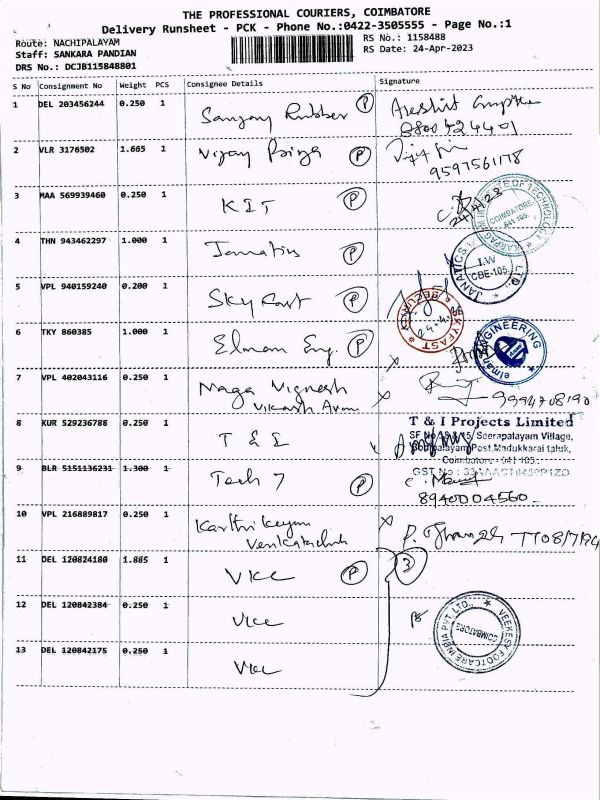 THE PROFESSIONAL COURIERS, COIMBATORE
Delivery Runsheet - PCK - Phone No.:0422-3505555 - Page No.:1
Route: NACHIPALAYAM
RS No.: 1158488
Staff: SANKARA PANDIAN
RS Date: 24-Apr-2023
DRS No.: DCJB115848801
S No Consignment No Weight PCS Consignee Details Signature
1 DEL 203456244 0.250 1 Sanjay Rubber P
2 VLR 3176502 1.665 1 Vijay Priya P 9597561178
3 MAA 569939460 0.250 1 KIT P 24/4/23
COIMBATORE
641 105
4 THN 943462297 1.000 1 Janatics P
JANATICS LTD.
I.W
CBE-105
5 VPL 940159240 0.200 1 Sky Fast P
SKYFAST
6 TKY 860385 1.000 1 Elman Eng. P
elman ENGINEERING
7 VPL 402043116 0.250 1 Naga Vignesh
9994708190
8 KUR 529236788 0.250 1 T & I
T & I Projects Limited
Seerapalayam Village,
Post, Madukkarai taluk,
Coimbatore - 641 105.
GST No :
9 BLR 5151136231 1.300 1 Tech 7 P
8940004560
10 VPL 216889817 0.250 1 Karthikeyan
11 DEL 120824180 1.885 1 VKC P 3
12 DEL 120842384 0.250 1 VKC
VEEKESY FOOTCARE INDIA PVT. LTD.,
COIMBATORE
13 DEL 120842175 0.250 1 VKC